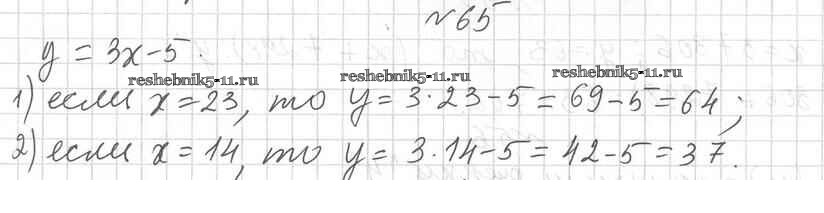 №65
y = 3x-5.
reshebnik5-11.ru reshebnik5-11.ru reshebnik5-11.ru
1) если x=23, то y=3·23-5=69-5=64;
2) если x=14, то y=3·14-5=42-5=37.